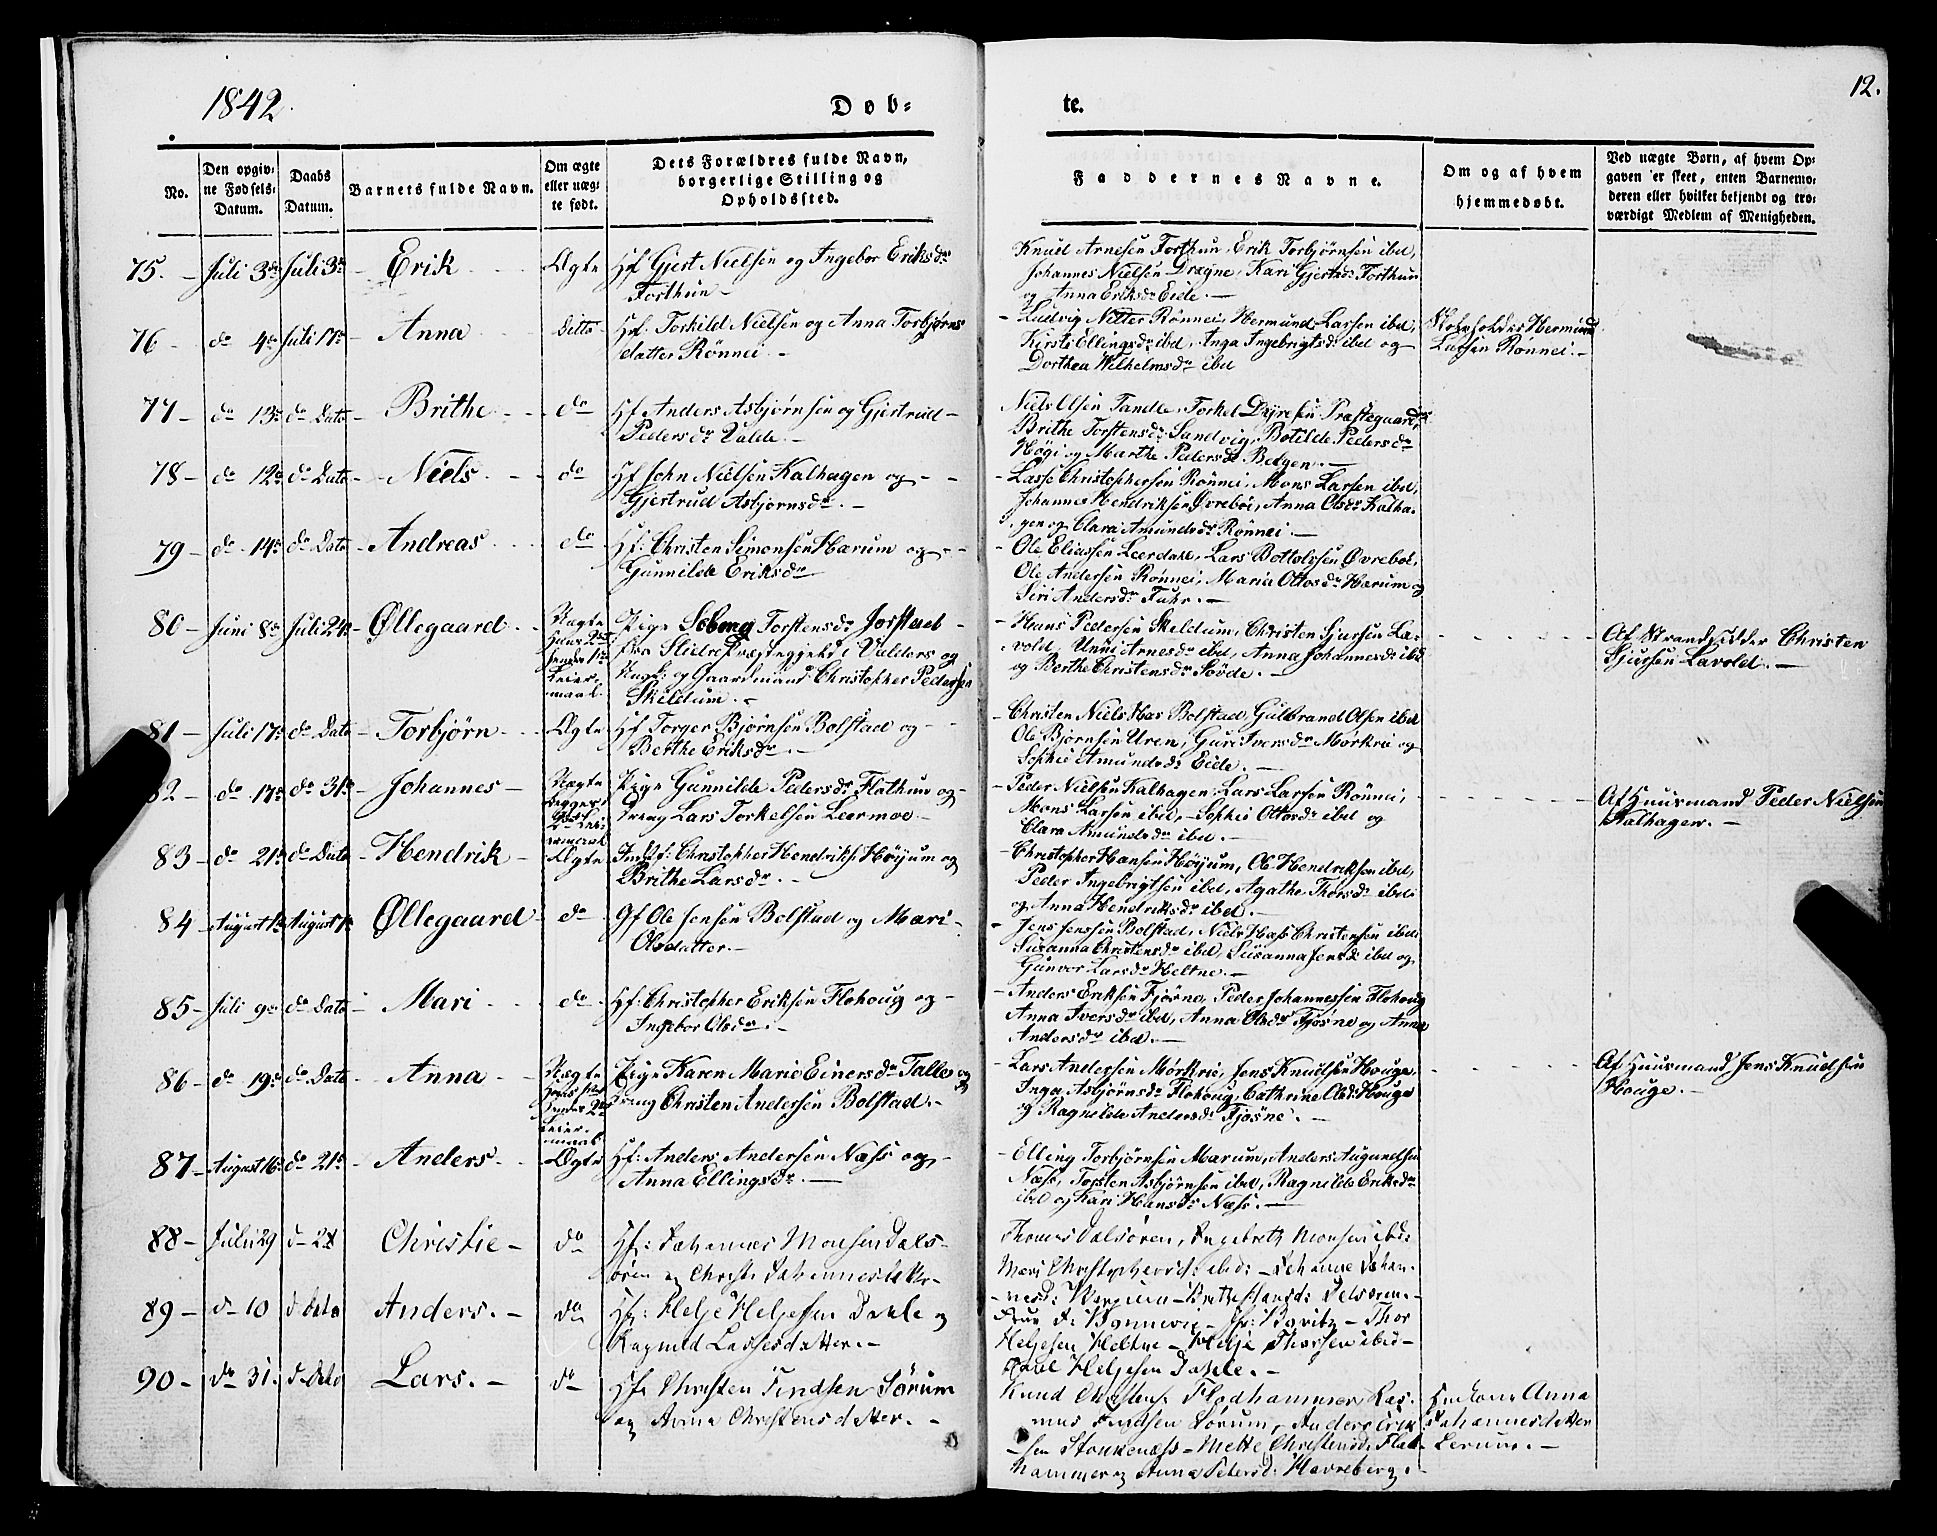 1842.
Døb-
te.
12.
No.
Den opgiv-
ne Fødsels-
Datum.
Daabs
Datum.
Barnets fulde Navn.
Om ægte
eller uæg-
te født.
Dets Forældres fulde Navn,
borgerlige Stilling og
Opholdssted.
Faddernes Navne.
Om og af hvem
hjemmedøbt.
Ved uægte Børn, af hvem Op-
gaven er skeet, enten Barnemo-
deren eller hvilket bekjendt og tro-
værdigt Medlem af Menigheden.
75. - Juli 3de Juli 3de - Erik Ægte Hf Gjert Nielsen og Ingebor Eriksdr
Forthun -
Knud Arnesen Forthun, Erik Torbjørnsen ibd,
Johannes Nielsen Drægne, Kari Gjertsdr Forthun
og Anna Eriksdr Eide. -
76 - do 4de Juli 17de - Anna Ditto Hf: Torkild Nielsen og Anna Torbjørns
datter Rønnei. -
- Ludvig Nitter Rønnei, Hermund Larsen ibd,
Kirsti Ellingsdr ibd, Inga Ingebrigtsdr ibd og
Dorthea Wilhelmsdr ibd
Skoleholder Hermund
Larsen Rønnei. -
77 - do 13de do Dato - Brithe - do Hf Anders Asbjørnsen og Gjertrud -
Pedersdr Valde. -
Niels Olsen Tandle, Torkel Dyresen Præstegaard,
Brithe Torstensdr Sandvig, Botilde Pedersdr
Høgi og Marthe Pedersdr Bergen. -
78 - do 12de do Dato - Niels - do Hf John Nielsen Kalhagen og -
Gjertrud Asbjørnsdr. -
- Lasse Christophersen Rønnei, Mons Larsen ibd,
Johannes Hendriksen Øvrebøe, Anna Olsdr Kalha-
gen og Clara Amundsdr Rønnei. -
79 - do 14de do Dato - Andreas do Hf: Christen Simonsen Harum og -
Gunnilde Eriksdr
- Ole Eliassen Leerdal, Lars Bottolvsen Øvrebøe,
Ole Andersen Rønnei, Maria Ottosdr Harum og
Siri Andersdr Fuhr. -
80 - Juni 8de Juli 24 - Øllegaard Uægte
Hans 2det
hendes 1ste
Leier-
maal.
Pige Solveig Torstensdr Jorstad -
fra Slidre Præstegjeld i Valders og
Ungk: og Gaardmand Christopher Pedersen
Skildum. -
- Hans Pedersen Skildum, Christen Sjursen La-
vold, Unni Arnesdr ibd, Anna Johannesdr ibd
og Berthe Christensdr Søvde. -
Af Strandsidder Christen
Sjursen Lavold. -
81 - Juli 17de do Dato - Torbjørn Ægte Hf Torger Bjørnsen Bolstad og -
Berthe Eriksdr. -
- Christen Niels Has Bolstad, Gulbrand Olsen ibd
Ole Bjørnsen Uren, Guri Iversdr Mørkrie og
Sophie Amundsdr Eide. -
82 - do 17de do 31te - Johannes - Uægte
Begges
Pige Gunnilde Pedersdr Flathum og -
Dreng Lars Torkelsen Leermoe -
- Peder Nielsen Kalhagen, Lars Larsen Rønnei,
Mons Larsen ibd, Sophie Ottosdr ibd og
Clara Amundsdr ibd. -
Af Huusmand Peder Nielsen
Kalhagen. -
83 - do 21de do Dato - Hendrik - Ægte Indf: Christopher Hendriks Høyum og
Brithe Larsdr. -
- Christopher Hansen Høyum, Ole Hendriksen ibd,
Peder Ingebrigtsen ibd, Agathe Thorsdr ibd
og Anna Hendriksdr ibd. -
84 - August 1ste August 1 Øllegaard do Gf Ole Jensen Bolstad og Mari -
Olsdatter. -
- Jens Jenssen Bolstad, Niels Hass Christensen ibd
Susanna Christensdr ibd, Susanna Jensdr ibd og
Gunvor Larsdr Heltne. -
85 - Juli 9de do Dato - Mari do Hf: Christopher Eriksen Flohoug og -
Ingebor Olsdr. -
- Anders Eriksen Fjøsne, Peder Johannessen Flohoug
Anna Iversdr ibd, Anna Olsdr Fjøsne og Anna
Andersdr ibd. -
86 - do 19de do Dato - Anna - Uægte
Hans 1ste
hendes 2det
Leier-
maal
Pige Karen Marie Einersdr Talle og
Dreng Christen Andersen Bolstad. -
- Lars Andersen Mørkrie, Jens Knudsen Houge,
Inga Asbjørnsdr Flohoug, Cathrine Olsdr Houge
og Ragnilde Andersdr Fjøsne. -
Af Huusmand Jens Knudsen
Houge. -
87 - August 16de do 21de - Anders Ægte Hf: Anders Andersen Næss og -
Anna Ellingsdr. -
- Elling Torbjørnsen Marum, Anders Augundsen
Næss, Torsten Asbjørnsen ibd, Ragnilde Eriksdr
ibd og Kari Hansdr Næss. -
88 - Juli 29 do 28 Christie - do Hf: Johannes Monsen Dals-
øren og Christi Johannesdatter -
Thomas Dalsøren, Ingebreth Monsen ibd:
Mari Christophersd: ibd: - Johanne Johan-
nesd: - Brithe Hansd: Dalsøren -
89 - do 10 do Dato Anders. - do Hf: Helje Heljesen Dahle og
Ragnild Lassesdatter. -
- Thor
Heljesen Heltne - Helje Thorsen ibid -
Heljesen Dahle. -
90 - do 31. do Dato Lars. - do Hf: Christen Findsen Sørum
og Anna Christensdatter. -
Knud Fladhammer Ras-
mus Findsen Sørum, Anders Erik
sen Stokkenæss - Mette Christensd: Flad-
hammer og Anna Petersd: Havreberg. -
Anna
Johannesdatter
Lerum. -